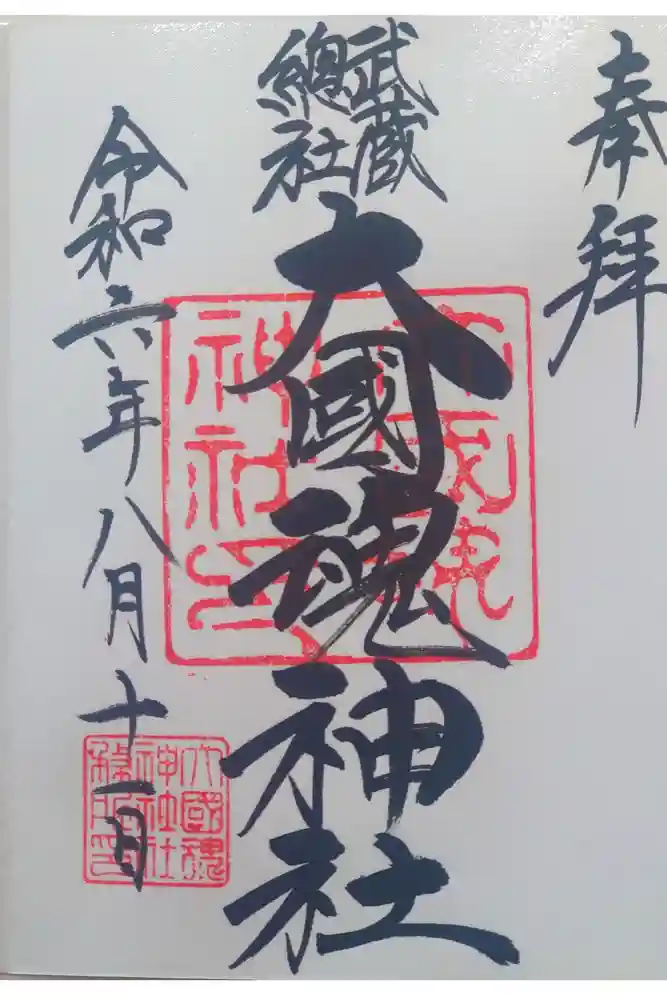 奉拝
武蔵
總社
大國魂神社
令和六年八月十一日
大國魂
神社社
務所印
大國魂
神社印